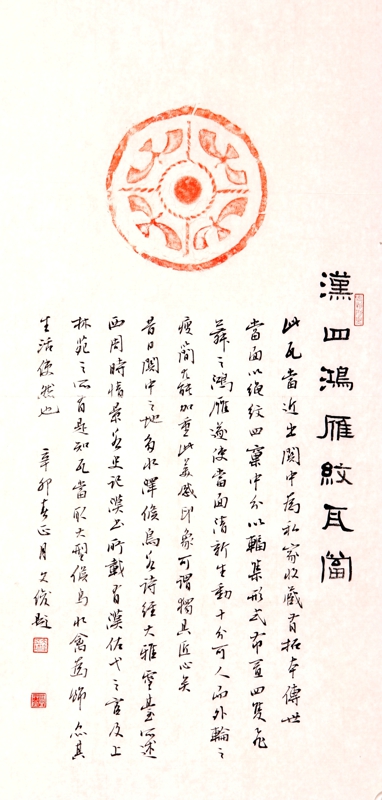 漢四鴻雁紋瓦當
此瓦當近出關中為私家收藏有拓本傳世
當面以繩紋四稟中分以輻集形式布置四隻飛
舞之鴻雁遂使當面清新生動十分可人而外輪之
瘦簡尤能加重此美感印象可謂獨具匠心矣
昔日關中之地多水澤候鳥若詩經大雅靈臺所述
西周時情景若史記漢書所載有漢佐弋之官及上
林苑之所有是知瓦當取大型候鳥水禽為飾亦其
生活使然也
辛卯春正月文俊題